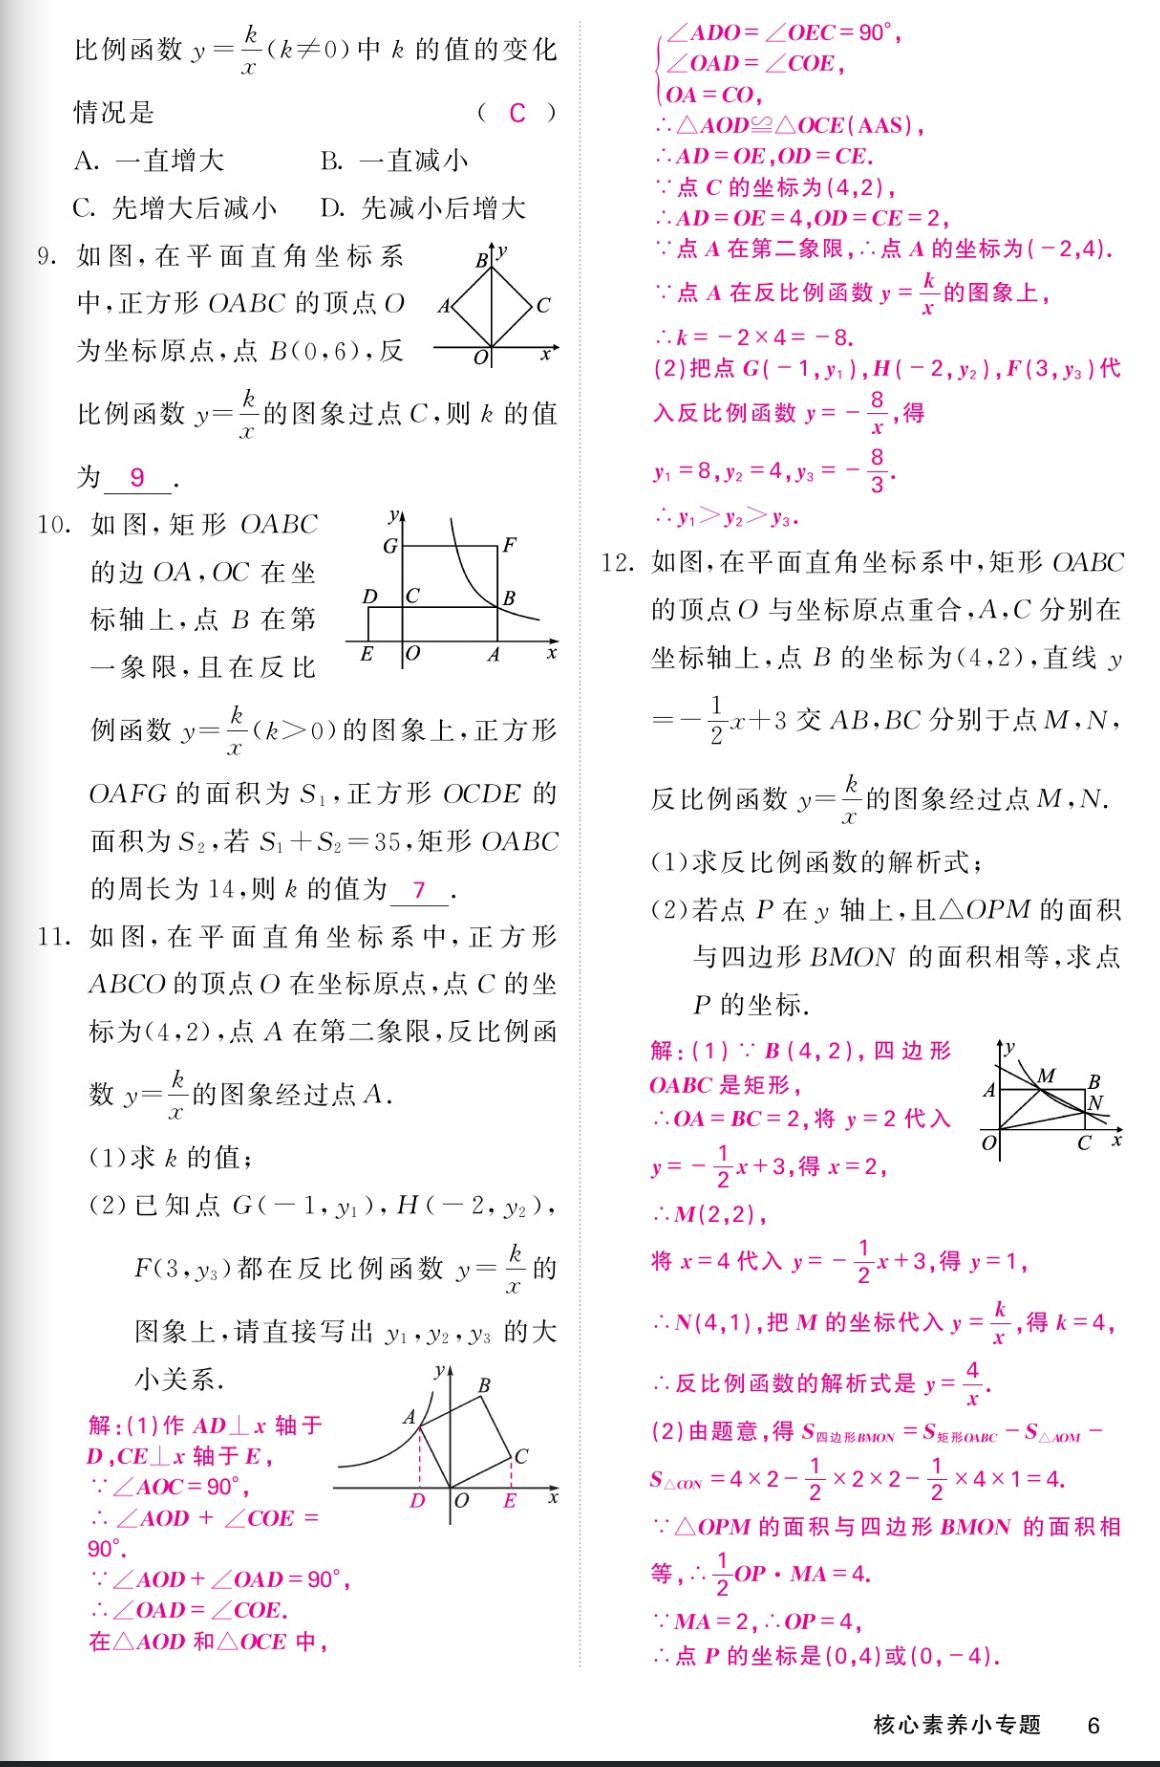 比例函数 y=k/x(k≠0)中 k 的值的变化
情况是 ( C )
A. 一直增大 B. 一直减小
C. 先增大后减小 D. 先减小后增大
9. 如图,在平面直角坐标系
中,正方形 OABC 的顶点 O
为坐标原点,点 B(0,6),反
比例函数 y=k/x的图象过点 C,则 k 的值
为 9 .
B y
A C
O x
10. 如图,矩形 OABC
的边 OA,OC 在坐
标轴上,点 B 在第
一象限,且在反比
例函数 y=k/x(k>0)的图象上,正方形
OAFG 的面积为 S₁,正方形 OCDE 的
面积为 S₂,若 S₁+S₂=35,矩形 OABC
的周长为 14,则 k 的值为 7 .
y
G F
D C B
E O A x
11. 如图,在平面直角坐标系中,正方形
ABCO 的顶点 O 在坐标原点,点 C 的坐
标为(4,2),点 A 在第二象限,反比例函
数 y=k/x的图象经过点 A.
(1)求 k 的值;
(2)已知点 G(-1,y₁),H(-2,y₂),
F(3,y₃)都在反比例函数 y=k/x的
图象上,请直接写出 y₁,y₂,y₃ 的大
小关系.
y B
A
C
D O E x
解:(1)作 AD⊥x 轴于
D,CE⊥x 轴于 E,
∵∠AOC=90°,
∴∠AOD+∠COE=
90°.
∵∠AOD+∠OAD=90°,
∴∠OAD=∠COE.
在△AOD 和△OCE 中,
{∠ADO=∠OEC=90°,
∠OAD=∠COE,
OA=CO,
∴△AOD≌△OCE(AAS),
∴AD=OE,OD=CE.
∵点 C 的坐标为(4,2),
∴AD=OE=4,OD=CE=2,
∵点 A 在第二象限,∴点 A 的坐标为(-2,4).
∵点 A 在反比例函数 y=k/x的图象上,
∴k=-2×4=-8.
(2)把点 G(-1,y₁),H(-2,y₂),F(3,y₃)代
入反比例函数 y=-8/x,得
y₁=8,y₂=4,y₃=-8/3.
∴y₁>y₂>y₃.
12. 如图,在平面直角坐标系中,矩形 OABC
的顶点 O 与坐标原点重合,A,C 分别在
坐标轴上,点 B 的坐标为(4,2),直线 y
=-1/2x+3 交 AB,BC 分别于点 M,N,
反比例函数 y=k/x的图象经过点 M,N.
(1)求反比例函数的解析式;
(2)若点 P 在 y 轴上,且△OPM 的面积
与四边形 BMON 的面积相等,求点
P 的坐标.
解:(1)∵B(4,2),四边形
OABC 是矩形,
∴OA=BC=2,将 y=2 代入
y=-1/2x+3,得 x=2,
∴M(2,2),
y
A M B
N
O C x
将 x=4 代入 y=-1/2x+3,得 y=1,
∴N(4,1),把 M 的坐标代入 y=k/x,得 k=4,
∴反比例函数的解析式是 y=4/x.
(2)由题意,得 S四边形BMON=S矩形OABC-S△AOM-
S△CON=4×2-1/2×2×2-1/2×4×1=4.
∵△OPM 的面积与四边形 BMON 的面积相
等,∴1/2OP·MA=4.
∵MA=2,∴OP=4,
∴点 P 的坐标是(0,4)或(0,-4).
核心素养小专题 6